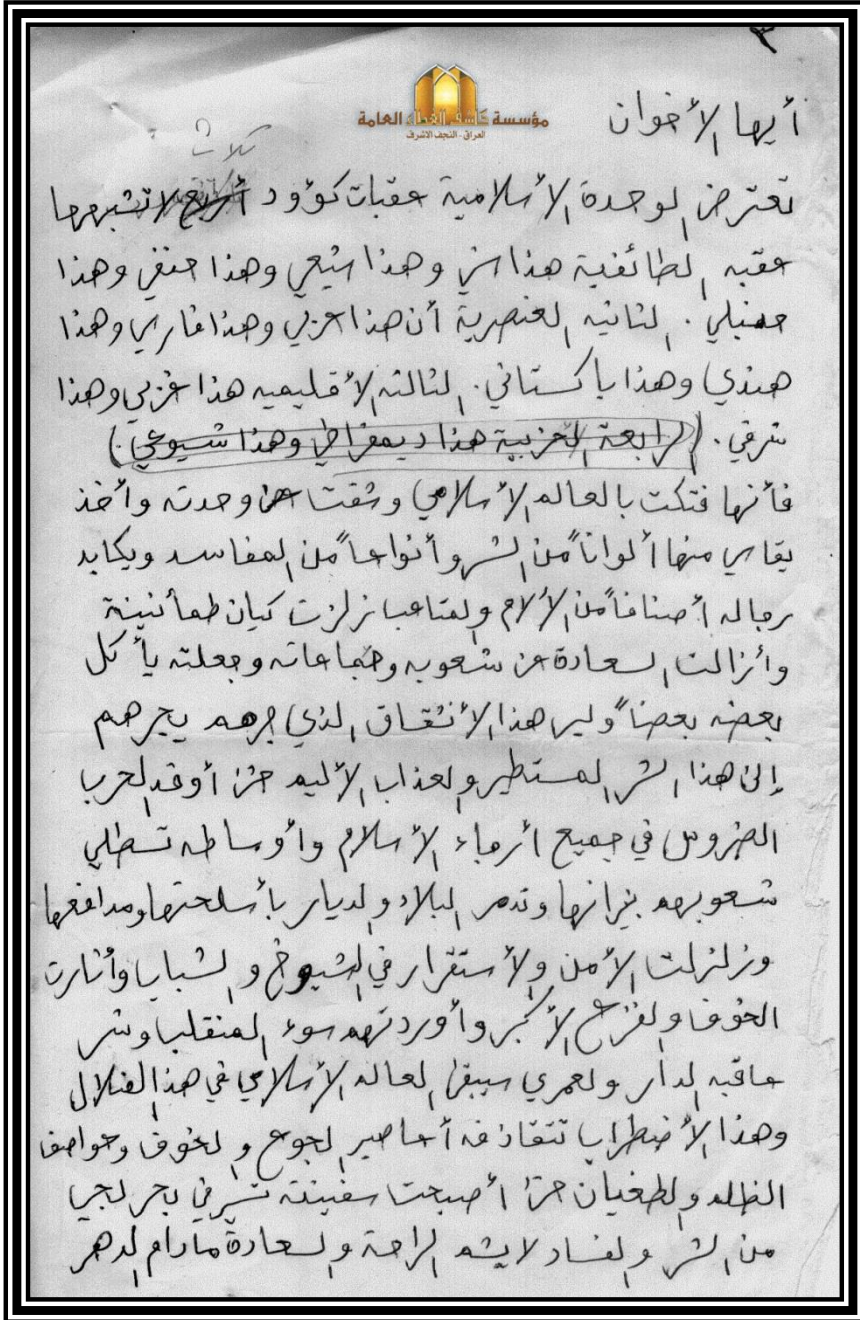 ٣
مؤسسة كاشف الغطاء العامة
العراق - النجف الاشرف
أيها الأخوان
ثلاث
تعترض الوحدة الأسلامية عقبات كؤود أربع لا تشبهها
عقبه الطائفية هذا سني وهذا شيعي وهذا حنفي وهذا
حنبلي . الثانيه العنصرية أن هذا عربي وهذا فارسي وهذا
هندي وهذا باكستاني . الثالثه الأقليميه هذا غربي وهذا
شرقي . (الرابعة الحزبية هذا ديمقراطي وهذا شيوعي .)
فأنها فتكت بالعالم الأسلامي وشقت عن وحدته وأخذ
يقاسي منها ألواناً من الشر وأنواعاً من المفاسد ويكابد
رجاله أصنافاً من الألام والمتاعب زلزلت كيان طمأنينة
وأزالت السعادة عن شعوبه وجماعاته وجعلته يأكل
بعضه بعضاً وليس هذا الأنشقاق الذي جرهم يجرهم
إلى هذا الشر المستطير والعذاب الأليم حتى أوقد الحرب
الضروس في جميع أرجاء الأسلام وأوساطه تصطلي
شعوبهم بنيرانها وتدمر البلاد والديار بأسلحتها ومدافعها
وزلزلت الأمن والأستقرار في الشيوخ والشباب وأثارت
الخوف والفزع الأكبر وأوردتهم سوء المنقلب وشر
عاقبه الدار ولعمري سيبقى العالم الأسلامي في هذا الضلال
وهذا الأضطراب تتقاذفه أعاصير الجوع والخوف وعواصف
الظلم والطغيان حتى أصبحت سفينته تسير في بحر لجي
من الشر والفساد لا يشم الراحة والسعادة مادام الدهر